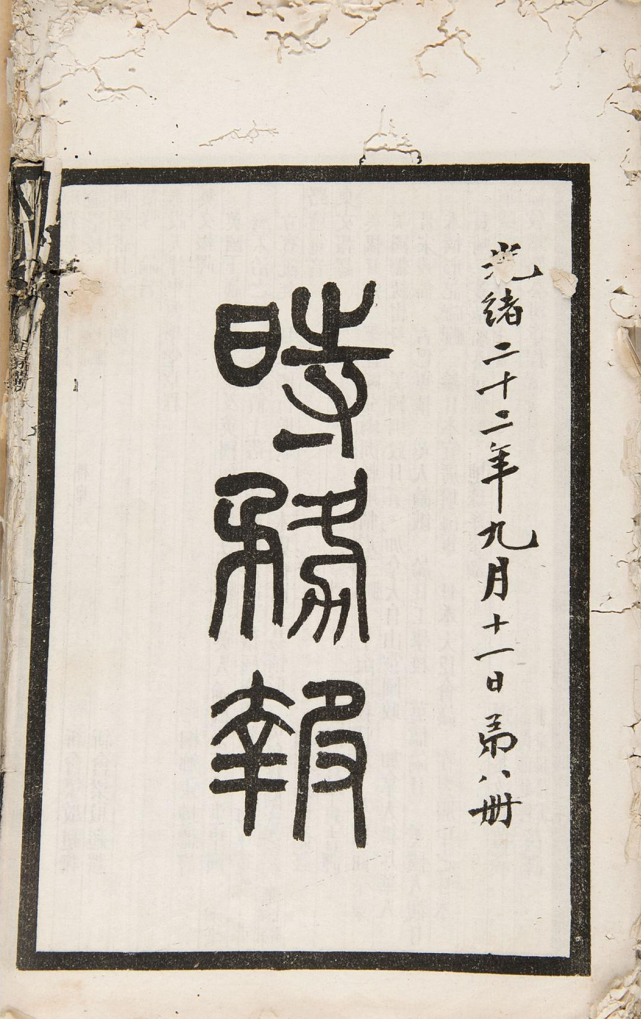 光緒二十二年九月十一日 第八册
時務報